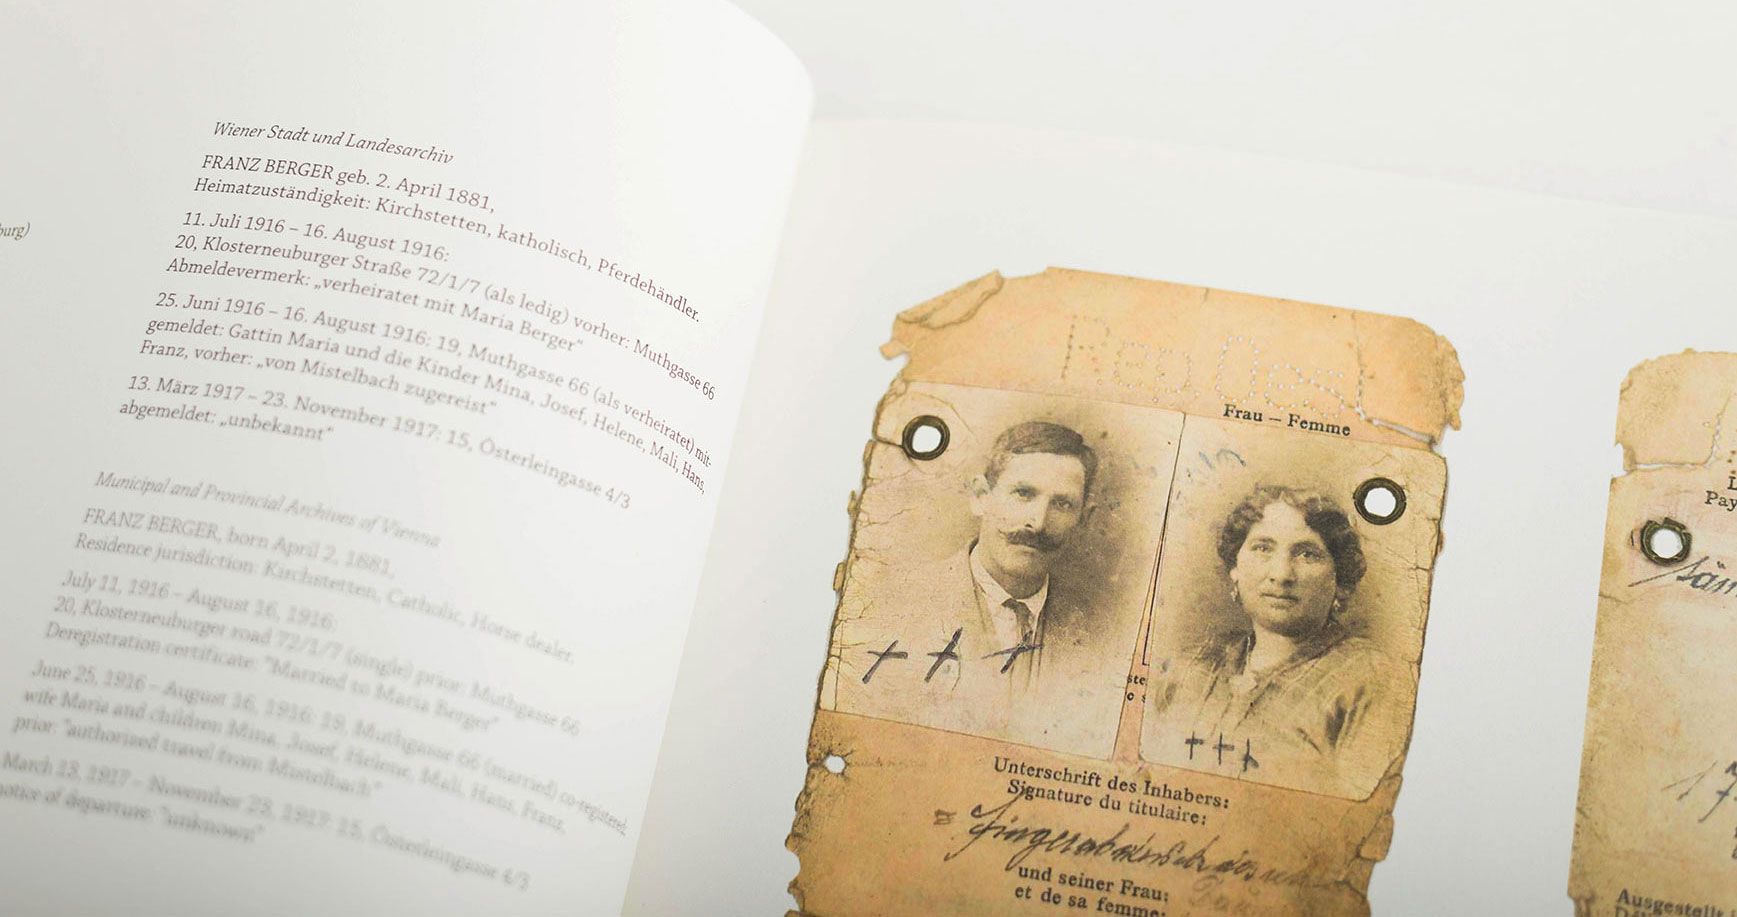 burg)
Wiener Stadt und Landesarchiv
FRANZ BERGER geb. 2. April 1881,
Heimatzuständigkeit: Kirchstetten, katholisch, Pferdehändler.
11. Juli 1916 – 16. August 1916:
20, Klosterneuburger Straße 72/1/7 (als ledig) vorher: Muthgasse 66
Abmeldevermerk: „verheiratet mit Maria Berger“
25. Juni 1916 – 16. August 1916: 19, Muthgasse 66 (als verheiratet) mit-
gemeldet: Gattin Maria und die Kinder Mina, Josef, Helene, Mali, Hans,
Franz, vorher: „von Mistelbach zugereist“
13. März 1917 – 23. November 1917: 15, Österleingasse 4/3
abgemeldet: „unbekannt“
Municipal and Provincial Archives of Vienna
FRANZ BERGER, born April 2, 1881,
Residence jurisdiction: Kirchstetten, Catholic, Horse dealer,
July 11, 1916 – August 16, 1916:
20, Klosterneuburger road 72/1/7 (single) prior: Muthgasse 66
Deregistration certificate: "Married to Maria Berger"
June 25, 1916 – August 16, 1916: 19, Muthgasse 66 (married) co-registered
wife Maria and children Mina, Josef, Helene, Mali, Hans, Franz,
prior: "authorized travel from Mistelbach"
March 13, 1917 – November 23, 1917: 15, Österleingasse 4/3
notice of departure: "unknown"
Frau – Femme
+ + +
+++
Unterschrift des Inhabers:
Signature du titulaire:
und seiner Frau:
et de sa femme:
Pay
17
Ausgestellt